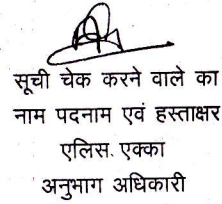 सूची चेक करने वाले का
नाम पदनाम एवं हस्ताक्षर
एलिस. एक्का
अनुभाग अधिकारी